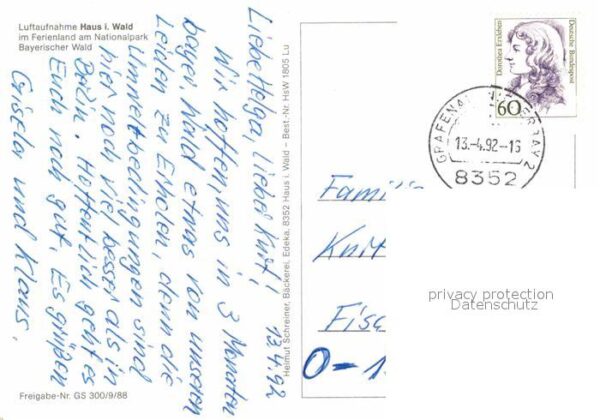 Luftaufnahme Haus i. Wald
im Ferienland am Nationalpark
Bayerischer Wald
Liebe Helga, Liebe Kurt! 13.4.92
Wir hoffen, uns in 3 Monaten
bayer. Wald etwas von unseren
Leiden zu Erholen, denn die
Umweltbedingungen sind
hier noch viel besser als in
Berlin. Hoffentlich geht es
Euch noch gut. Es grüßen
Gisela und Klaus.
Freigabe-Nr. GS 300/9/88
Helmut Schreiner, Bäckerei, Edeka, 8352 Haus i. Wald – Best.-Nr. HsW 1805 Lu
Dorothea Erxleben
Deutsche Bundespost
60
13.-4.92-16
8352
Famili
Fis
O-1
privacy protection
Datenschutz